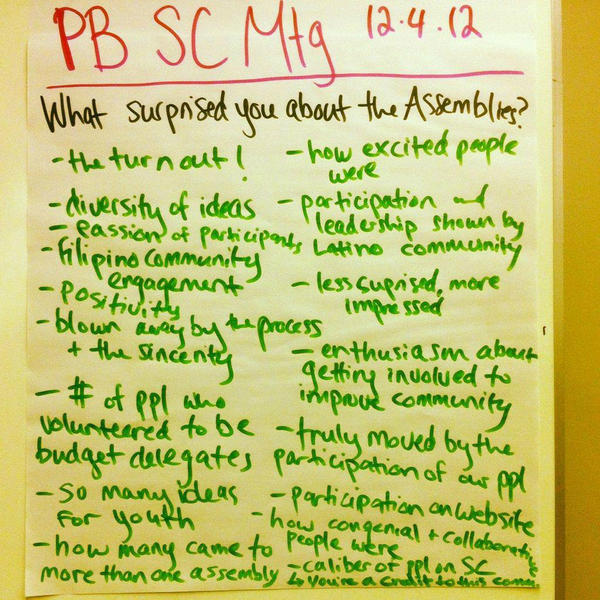 PB SC Mtg 12.4.12
What surprised you about the Assemblies?
- the turn out!
- diversity of ideas
- passion of participants
- Filipino community
engagement
- positivity
- blown away by the process
+ the sincerity
- # of ppl who
volunteered to be
budget delegates
- so many ideas
for youth
- how many came to
more than one assembly
- how excited people
were
- participation and
leadership shown by
Latino community
- less suprised, more
impressed
- enthusiasm about
getting involved to
improve community
- truly moved by the
participation of our ppl
- participation on website
- how congenial + collaborative
people were
- caliber of ppl on SC
↳ You're a credit to this comm.